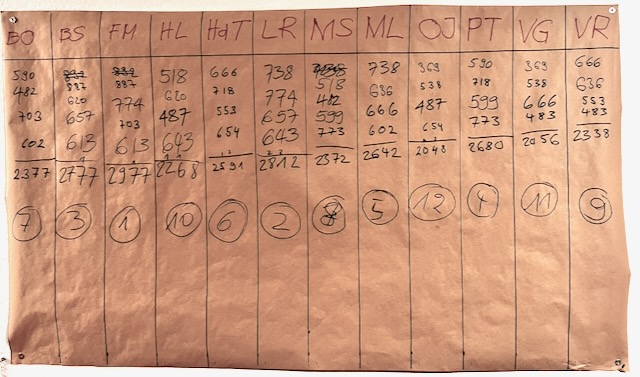 BO BS FM HL HdT LR MS ML OJ PT VG VR
590 887 887 518 666 738 518 738 369 590 369 666
482 620 774 620 718 774 482 636 538 718 538 636
703 657 703 487 553 657 599 666 487 599 666 553
602 613 613 643 654 643 773 602 654 773 483 483
2377 2777 2977 2268 2591 2812 2372 2642 2048 2680 2056 2338
7 3 1 10 6 2 8 5 12 4 11 9